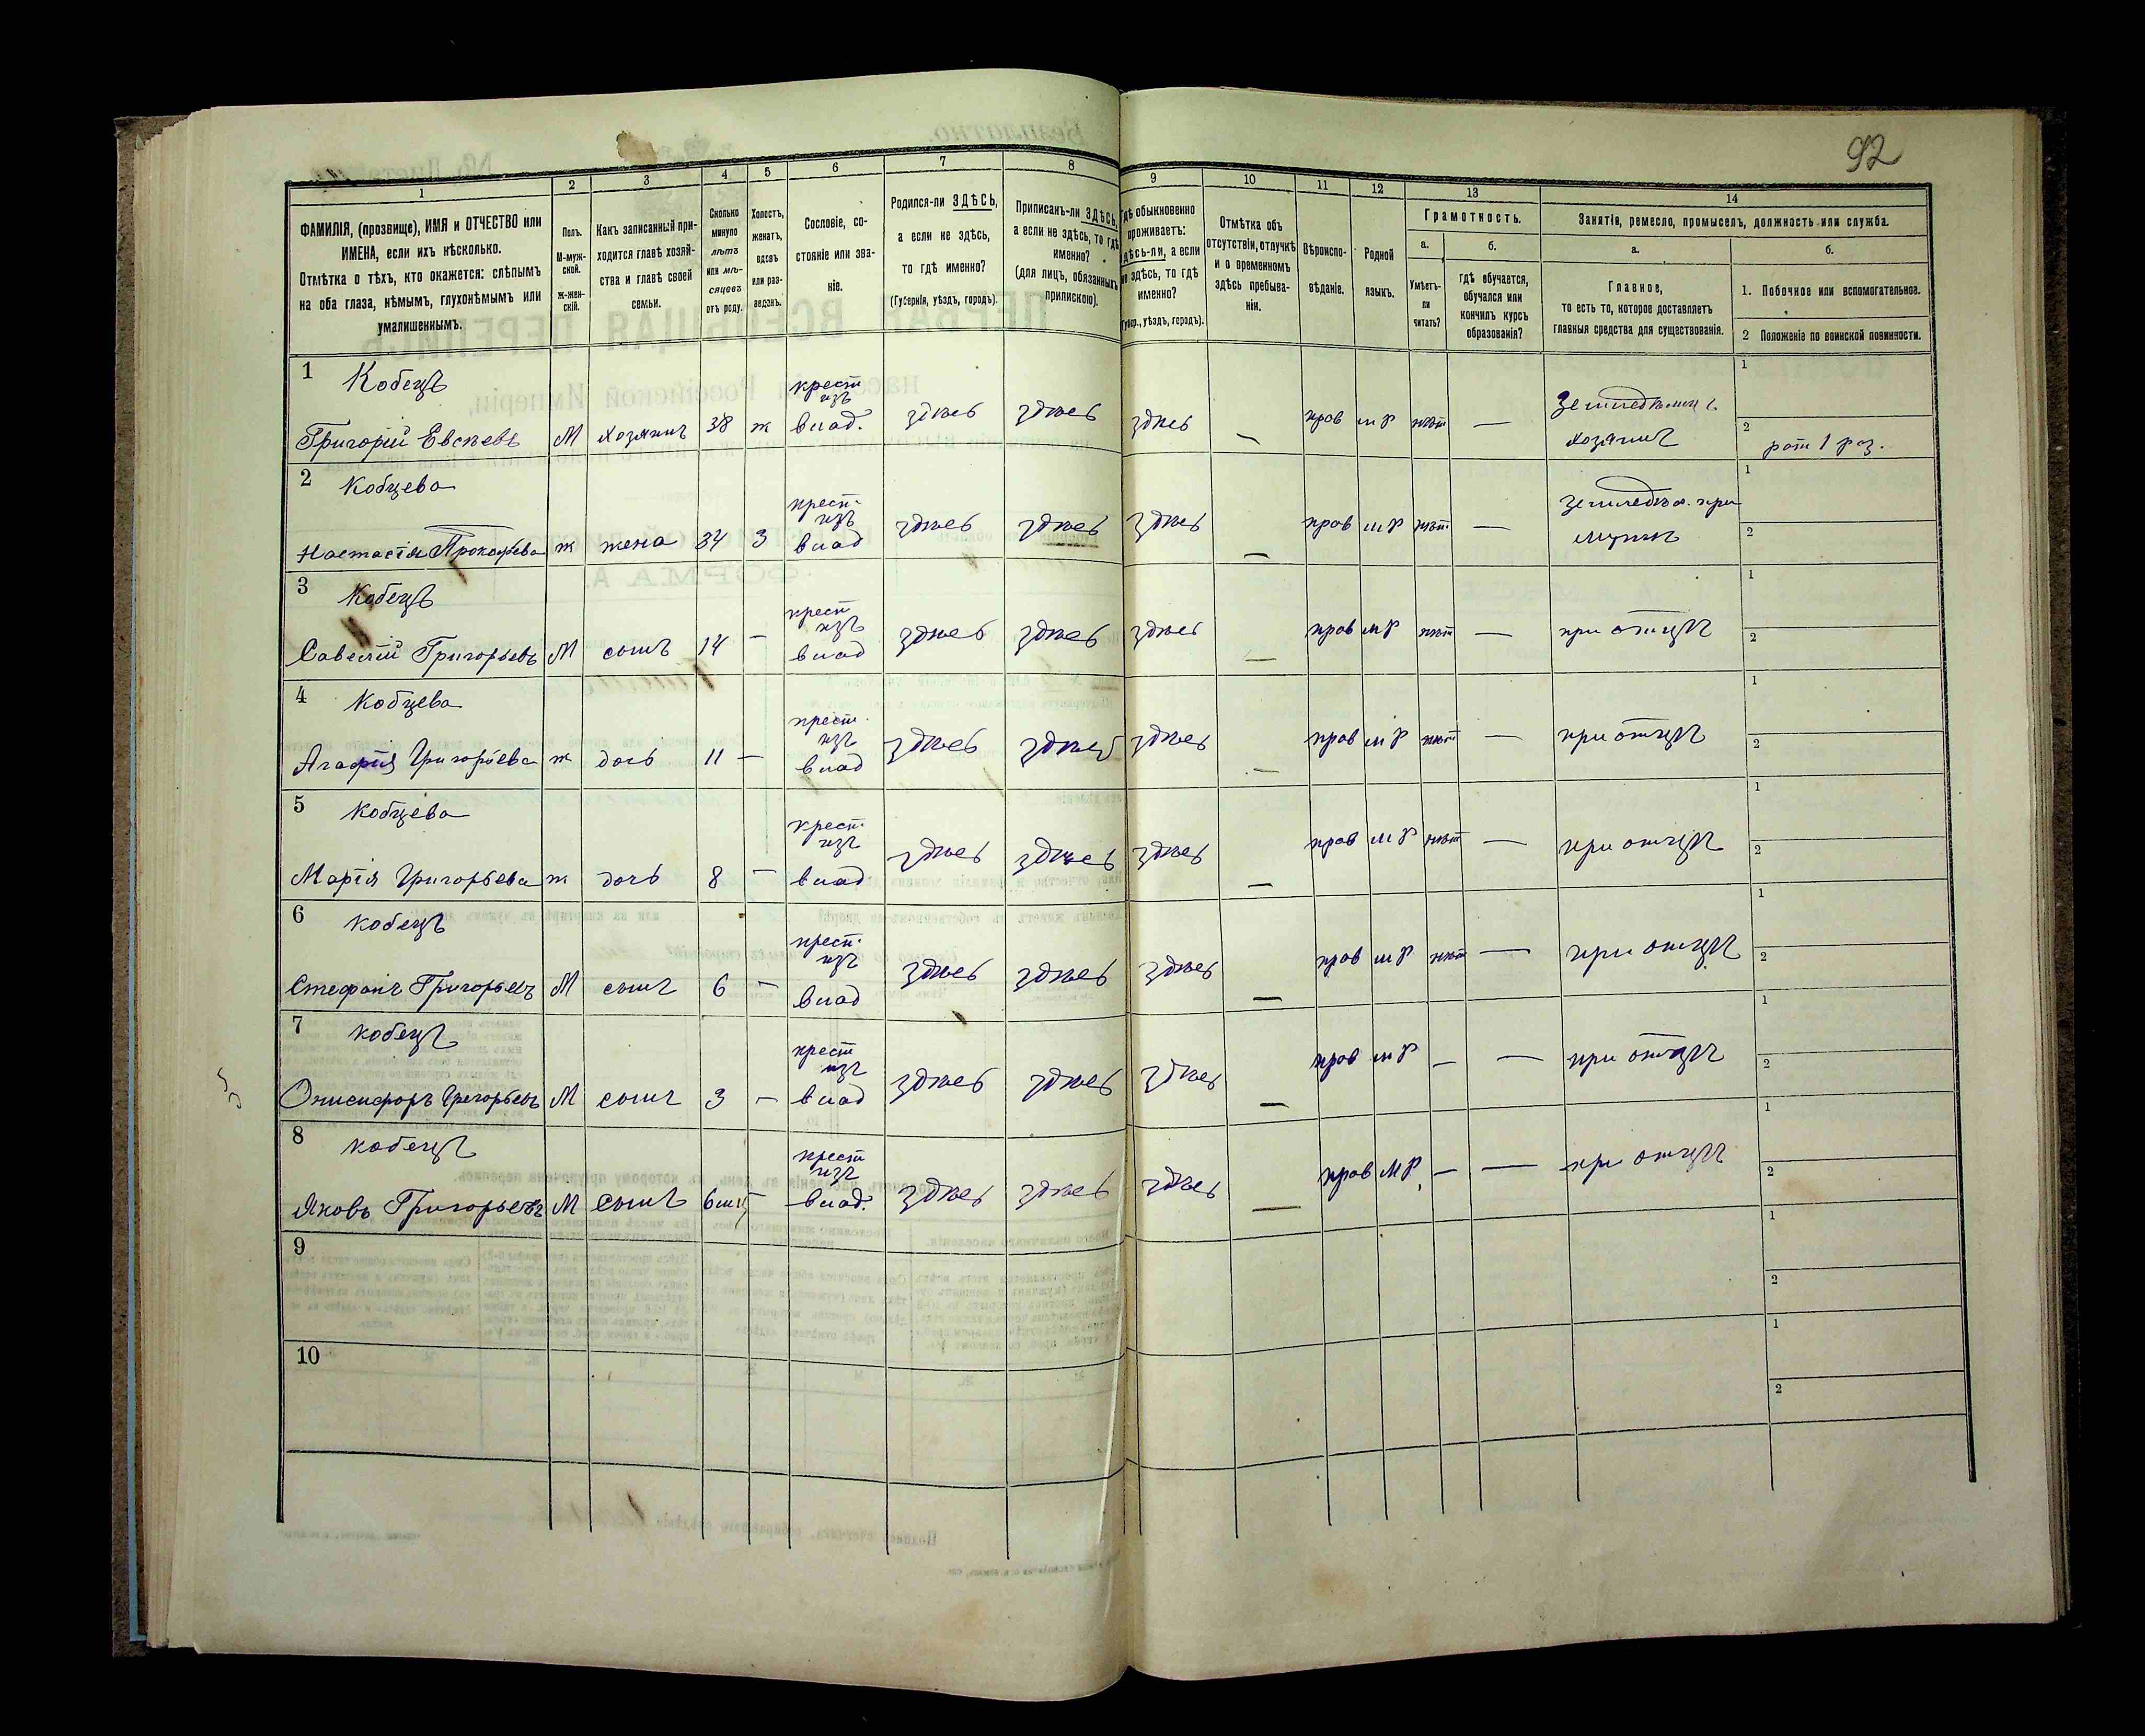 92
1
2
3
4
5
6
7
8
9
10
11
12
13
14
ФАМИЛІЯ, (прозвище), ИМЯ и ОТЧЕСТВО или
ИМЕНА, если ихъ нѣсколько.
Отмѣтка о тѣхъ, кто окажется: слѣпымъ
на оба глаза, нѣмымъ, глухонѣмымъ или
умалишеннымъ.
Полъ.
М-муж-
ской.
ж-жен-
скій.
Какъ записанный при-
ходится главѣ хозяй-
ства и главѣ своей
семьи.
Сколько
минуло
лѣтъ
или мѣ-
сяцевъ
отъ роду.
Холостъ,
женатъ,
вдовъ
или раз-
веденъ.
Сословіе, со-
стояніе или зва-
ніе.
Родился-ли ЗДѢСЬ,
а если не здѣсь,
то гдѣ именно?
(Губернія, уѣздъ, городъ).
Приписанъ-ли ЗДѢСЬ,
а если не здѣсь, то гдѣ
именно?
(для лицъ, обязанныхъ
припискою).
Гдѣ обыкновенно
проживаетъ:
здѣсь-ли, а если
не здѣсь, то гдѣ
именно?
(Губер., уѣздъ, городъ).
Отмѣтка объ
отсутствіи, отлучкѣ
и о временномъ
здѣсь пребыва-
ніи.
Вѣроиспо-
вѣданіе.
Родной
языкъ.
Грамотность.
а.
Умѣетъ-
ли
читать?
б.
гдѣ обучается,
обучался или
кончилъ курсъ
образованія?
Занятія, ремесло, промыселъ, должность или служба.
а.
Главное,
то есть то, которое доставляетъ
главныя средства для существованія.
б.
1. Побочное или вспомогательное.
2 Положеніе по воинской повинности.
1 Кобецъ крест 1
изъ
Григорій Евсѣевъ М хозяинъ 38 ж влад. здѣсь здѣсь здѣсь — прав мр нѣт — хозяинъ 2 рат 1 раз.
2 Кобцева крест. 1
изъ
Настасія Прокофьева ж жена 34 З влад здѣсь здѣсь здѣсь — прав мр нѣт — при мужѣ 2
3 Кобецъ крест 1
изъ
Савелій Григорьевъ М сынъ 14 — влад здѣсь здѣсь здѣсь — прав мр нѣт — при отцѣ 2
4 Кобцева крест. 1
изъ
Агафія Григорьева ж дочь 11 — влад здѣсь здѣсь здѣсь — прав мр нѣт — при отцѣ 2
5 Кобцева крест. 1
изъ
Марія Григорьева ж дочь 8 — влад здѣсь здѣсь здѣсь — прав мр нѣт — при отцѣ 2
6 Кобецъ крест. 1
изъ
Стефанъ Григорьевъ М сынъ 6 — влад здѣсь здѣсь здѣсь — прав мр нѣт — при отцѣ 2
7 Кобецъ крест 1
изъ
Онисифоръ Григорьевъ М сынъ 3 — влад здѣсь здѣсь здѣсь — прав мр — — при отцѣ 2
8 Кобецъ крест 1
изъ
Яковъ Григорьевъ М сынъ 6 мц — влад. здѣсь здѣсь здѣсь — прав мр — — при отцѣ 2
9 1
2
10 1
2